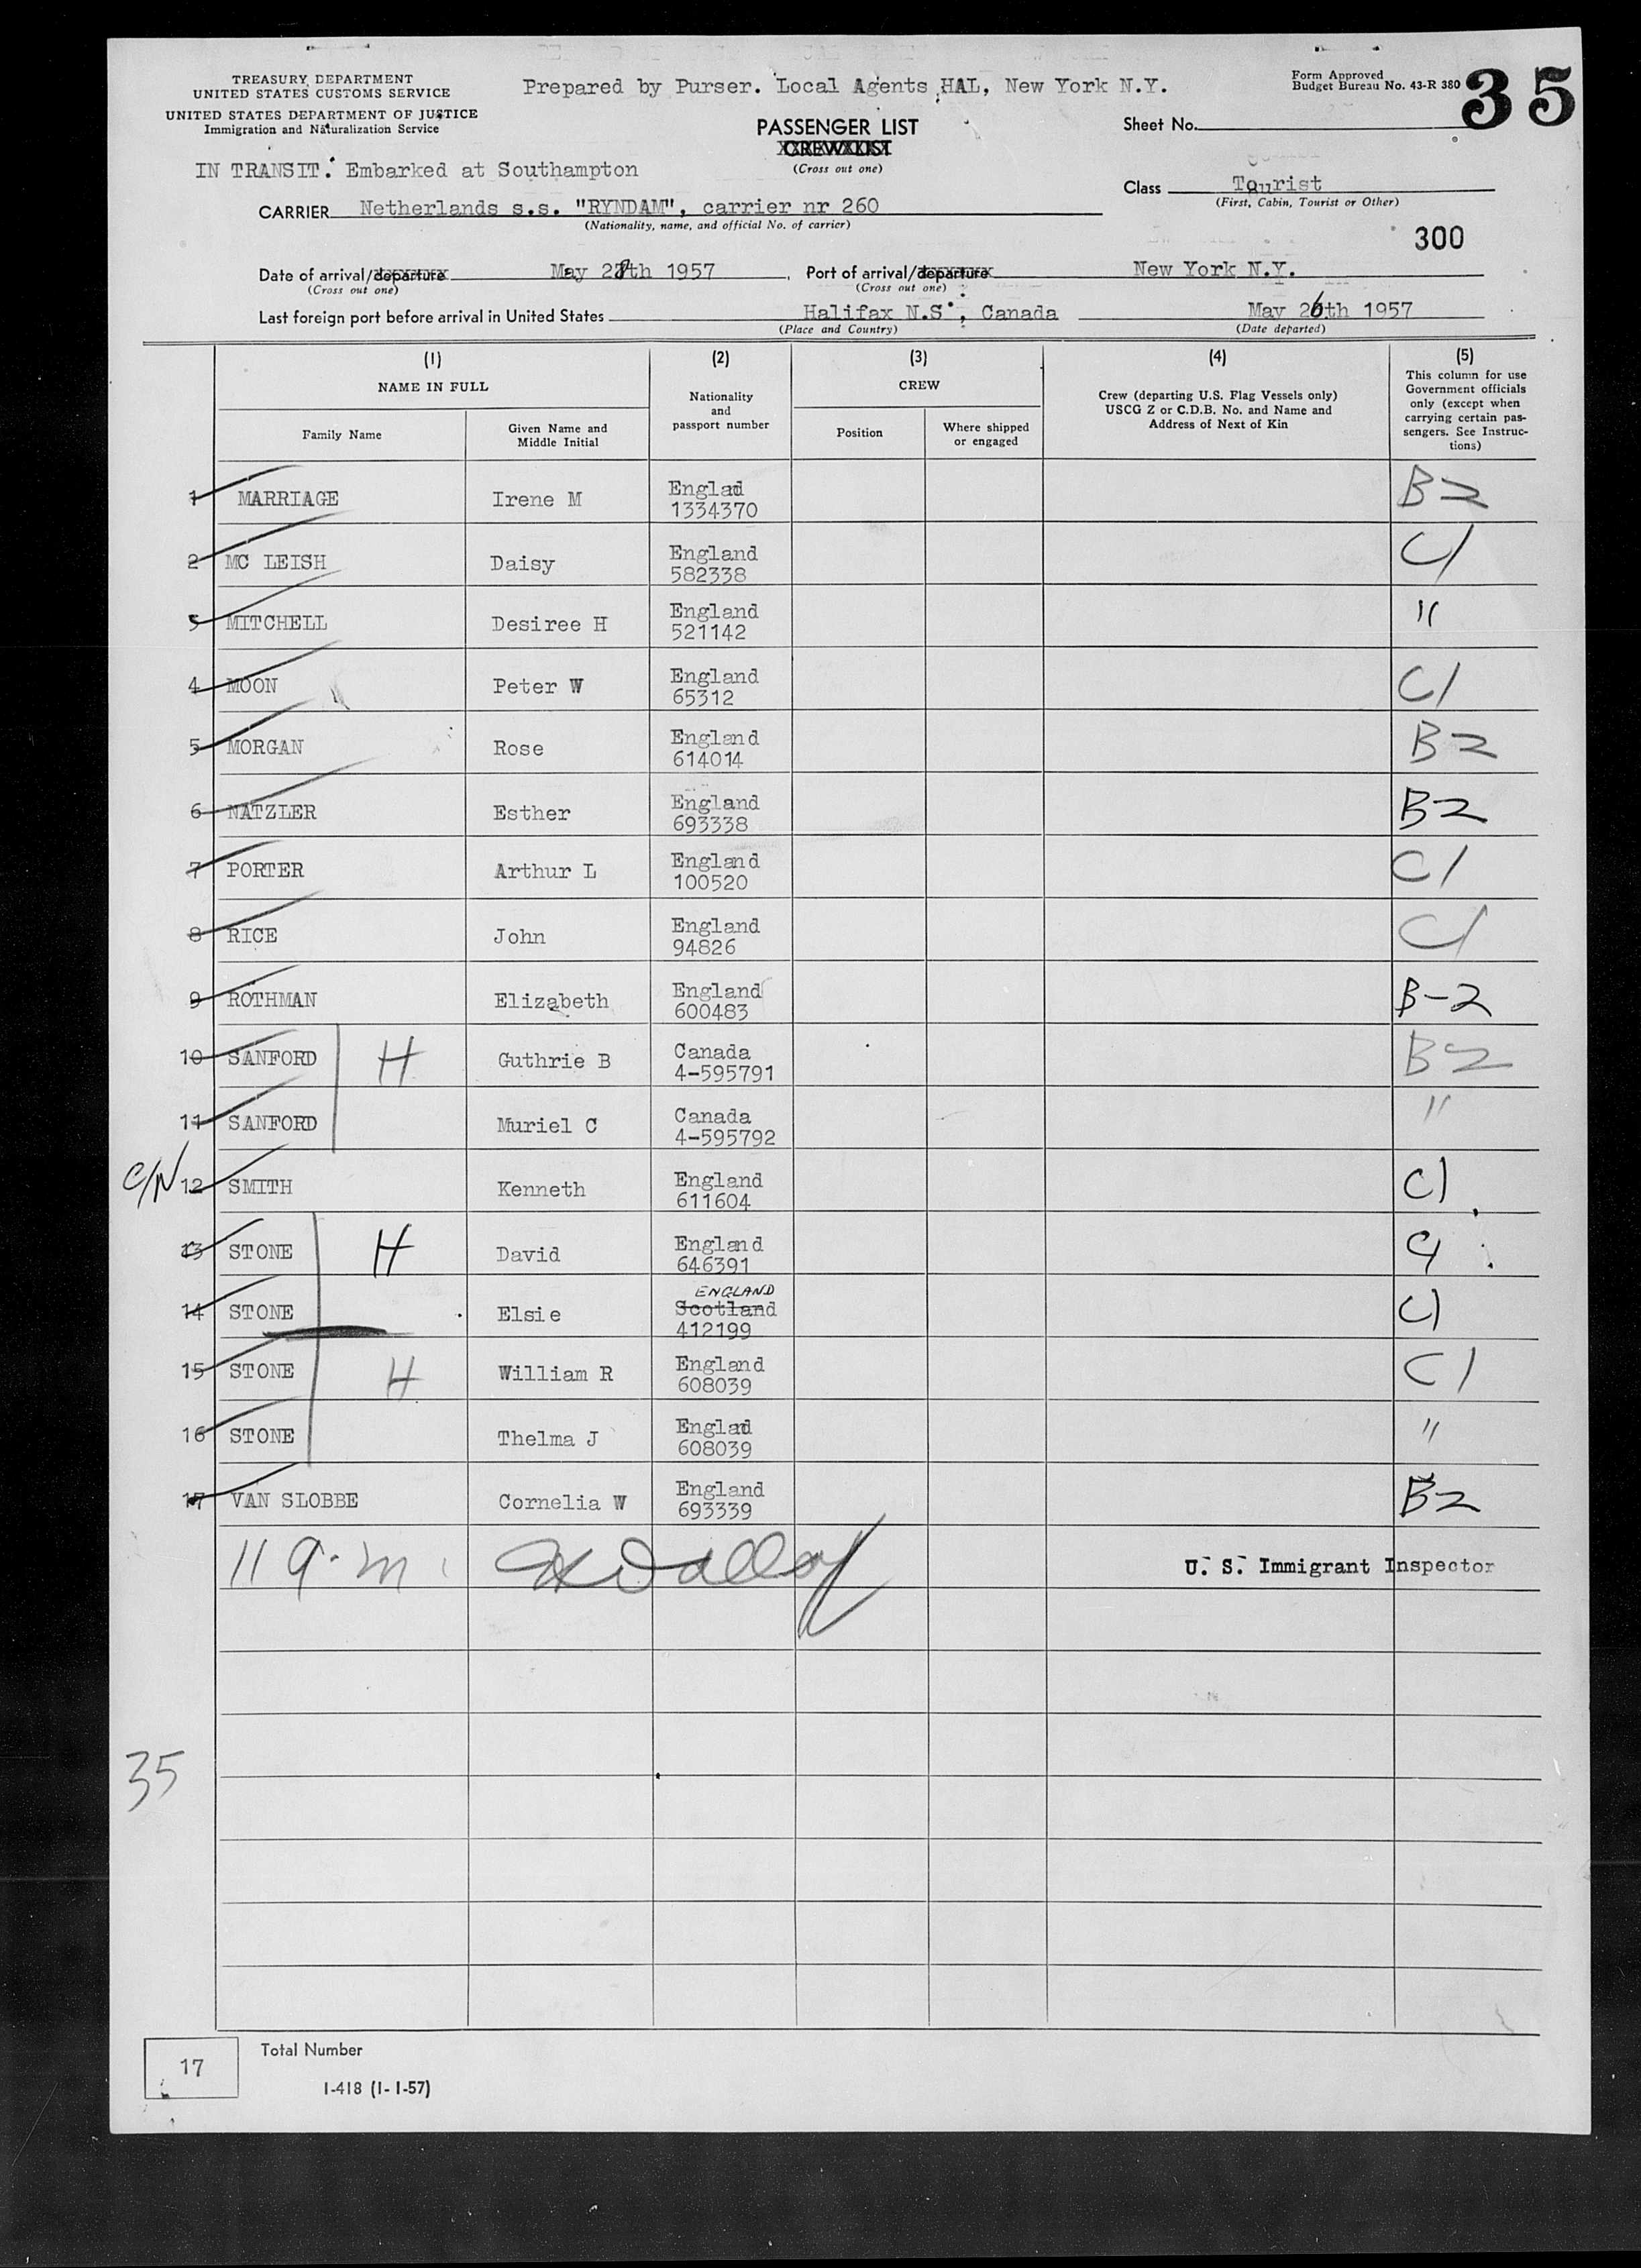 TREASURY DEPARTMENT
UNITED STATES CUSTOMS SERVICE
UNITED STATES DEPARTMENT OF JUSTICE
Immigration and Naturalization Service
Prepared by Purser. Local Agents HAL, New York N.Y.
Form Approved
Budget Bureau No. 43-R 380
35
PASSENGER LIST
CREW LIST
(Cross out one)
Sheet No.
IN TRANSIT: Embarked at Southampton
Class Tourist
(First, Cabin, Tourist or Other)
CARRIER Netherlands s.s. "RYNDAM", carrier nr 260
(Nationality, name, and official No. of carrier)
300
Date of arrival/departure May 28th 1957, Port of arrival/departure New York N.Y.
(Cross out one) (Cross out one)
Last foreign port before arrival in United States Halifax N.S., Canada May 26th 1957
(Place and Country) (Date departed)
(1) (2) (3) (4) (5)
NAME IN FULL
Family Name
Given Name and Middle Initial
Nationality and passport number
CREW
Position
Where shipped or engaged
Crew (departing U.S. Flag Vessels only)
USCG Z or C.D.B. No. and Name and
Address of Next of Kin
This column for use
Government officials
only (except when
carrying certain pas-
sengers. See Instruc-
tions)
1 MARRIAGE Irene M Englad 1334370 B2
2 MC LEISH Daisy England 582338 C1
3 MITCHELL Desiree H England 521142 "
4 MOON Peter W England 65312 C1
5 MORGAN Rose England 614014 B2
6 NATZLER Esther England 693338 B2
7 PORTER Arthur L England 100520 C1
8 RICE John England 94826 C1
9 ROTHMAN Elizabeth England 600483 B-2
10 SANFORD H Guthrie B Canada 4-595791 B2
11 SANFORD Muriel C Canada 4-595792 "
C/N 12 SMITH Kenneth England 611604 C1
13 STONE H David England 646391 C1
14 STONE Elsie ENGLAND Scotland 412199 C1
15 STONE H William R England 608039 C1
16 STONE Thelma J Englad 608039 "
17 VAN SLOBBE Cornelia W England 693339 B2
11 a.m.
U. S. Immigrant Inspector
35
17
Total Number
I-418 (1-1-57)